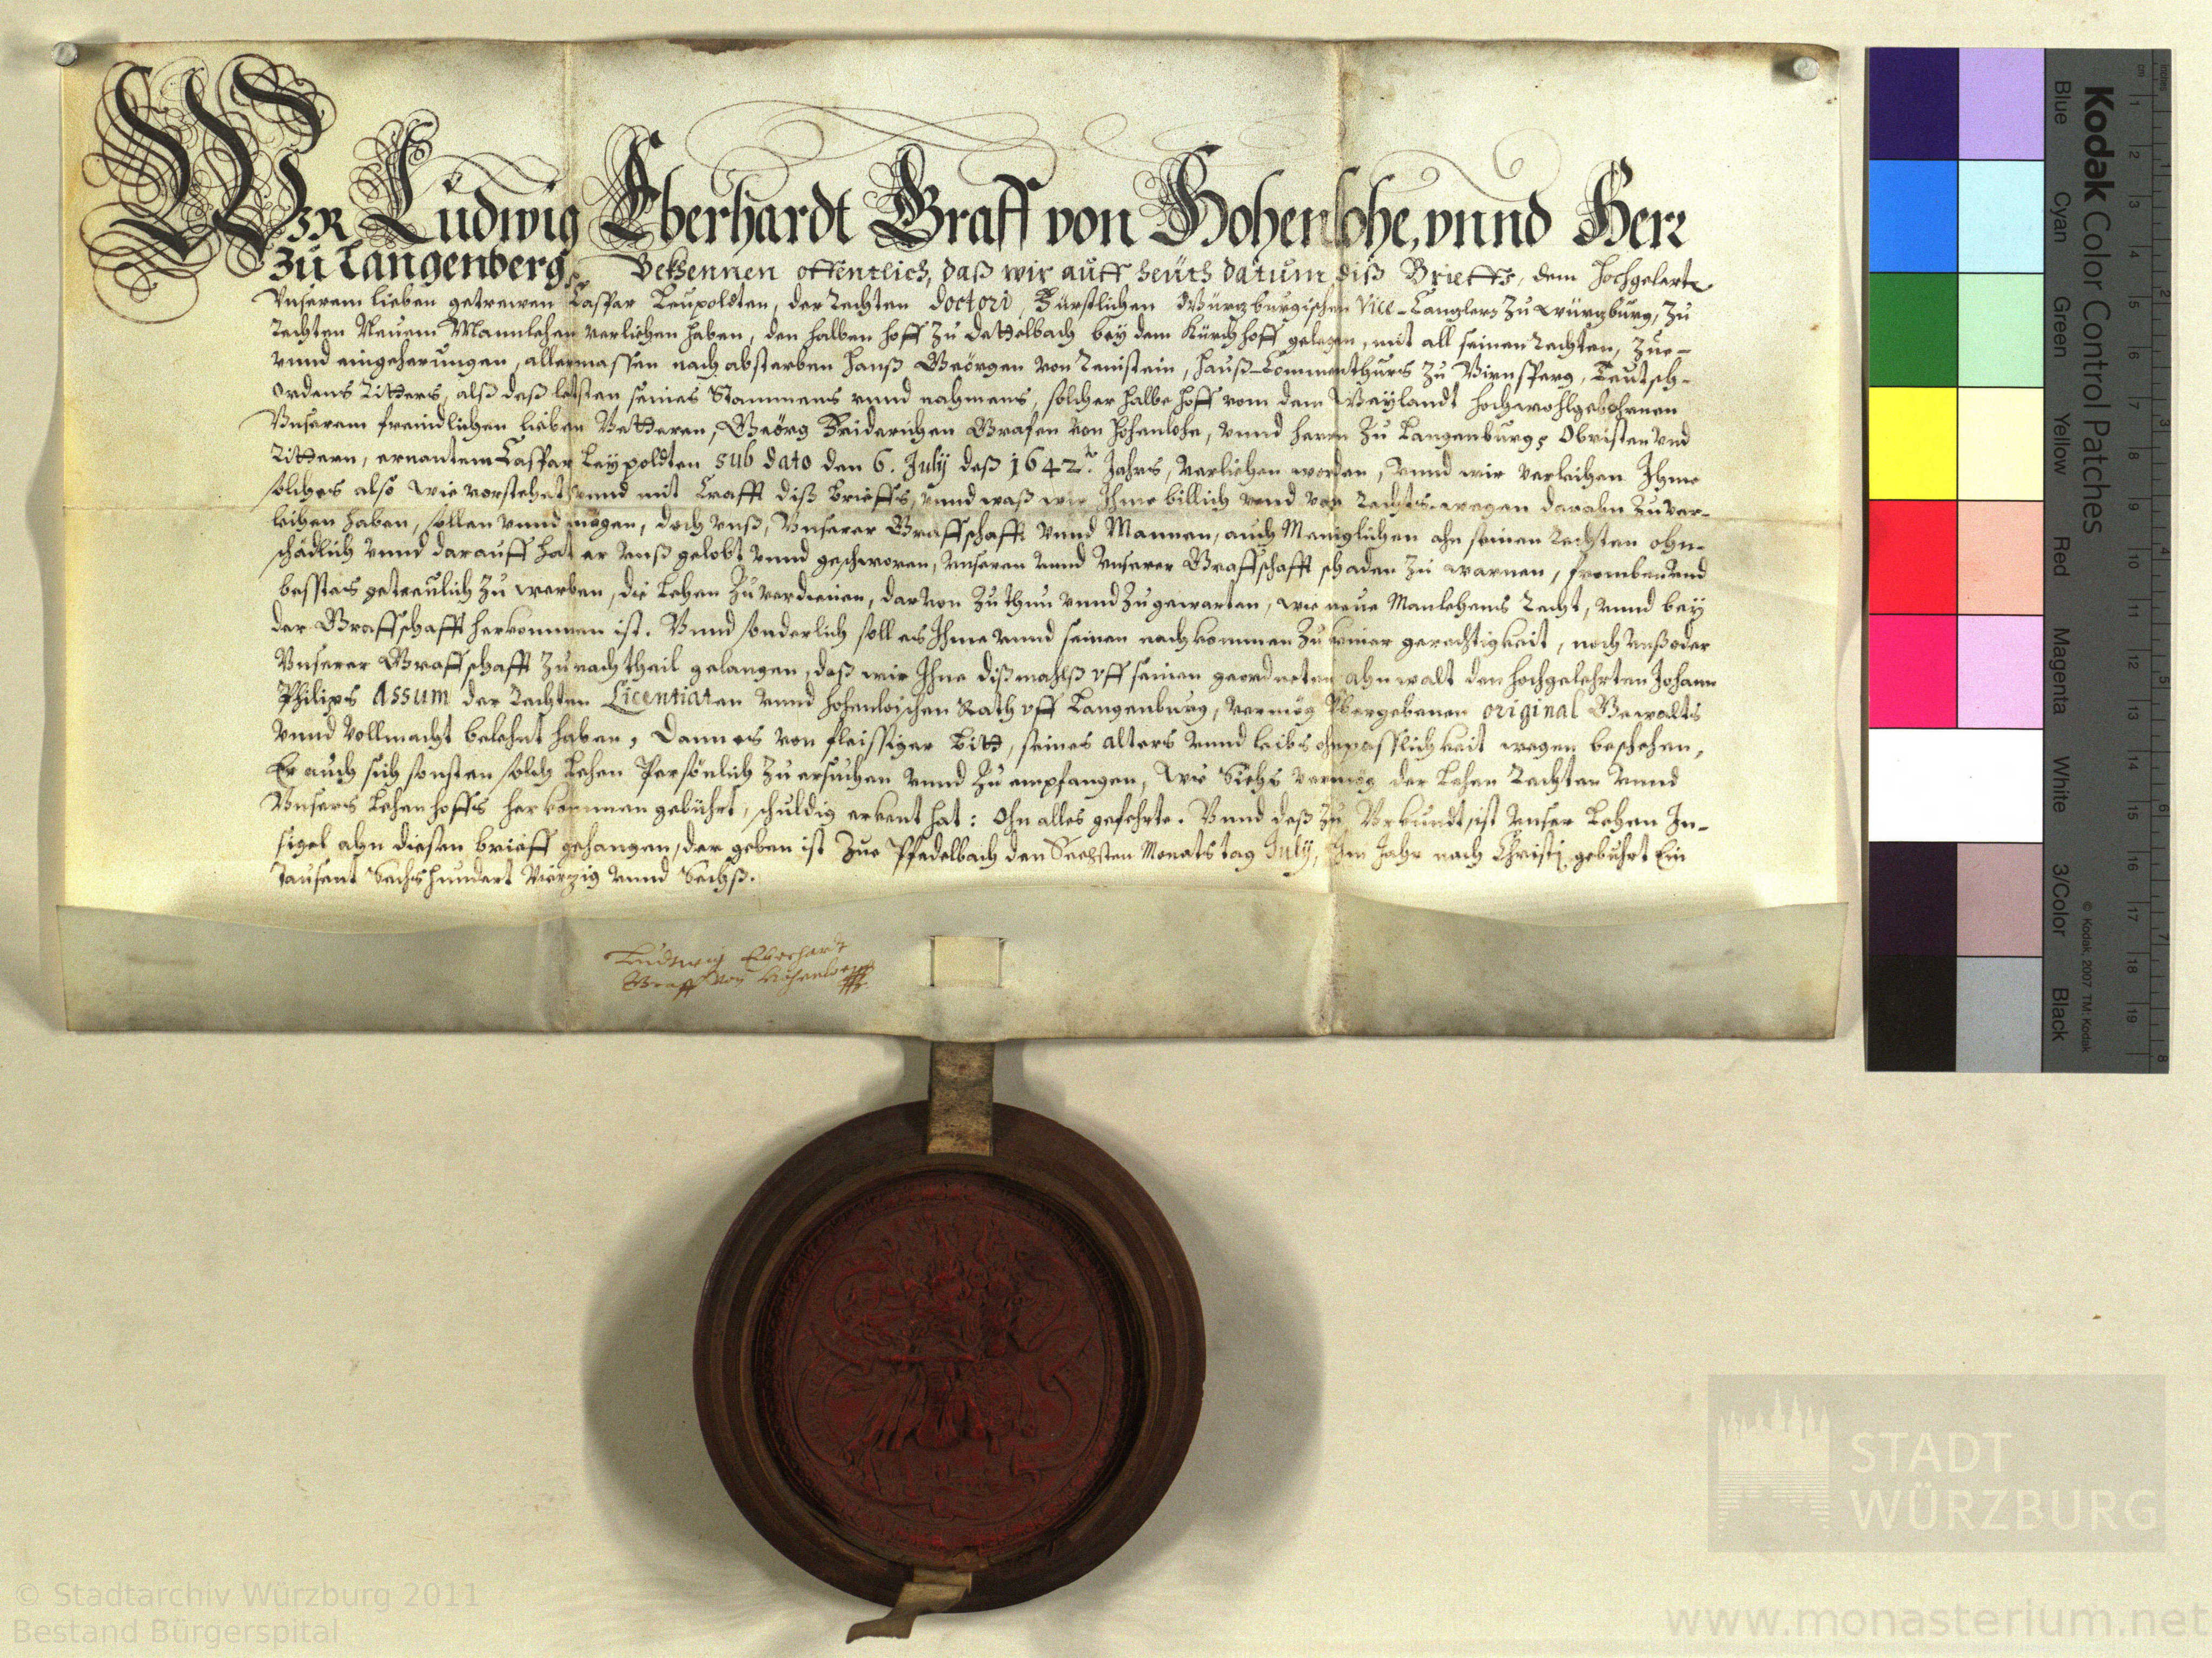 Wir Ludwig Eberhardt Graff von Hohenlohe, vnnd Herr
zu Langenberg, Bekennen offentlich, daß wir auff heüth datum diß Brieffs, dem Hochgelerten
Vnserem lieben getrewen Caspar Leupoldten, der Rechten Doctori, Fürstlichen Würtzburgischen Vice-Canzlers zu Würtzburg, zu
Rechten Neuem Mannlehen verliehen haben, den halben hoff zu dettelbach bey dem Kürchhoff gelegen, mit all seinen Rechten, Zue-
vnnd eingehörungen, allermassen nach absterben Hanß Geörgen von Reinstein, Hauß-Commenthurs zu Virnsperg, Teutsch-
ordens Ritters, alß deß letsten seines Stammens vnnd nahmens, solcher halbe hoff vom dem Weylandt Hochwohlgebohrnen
Vnserem freindlichen lieben Vetteren, Geörg Friderichen Grafen von Hohenlohe, vnnd Herrn zu Langenburg, Obristen vnd
Rittern, ernantem Caspar Leypoldten sub dato den 6. July deß 1642. Jahrs, verliehen worden, vnnd wir verleihen Ihme
solches also wie vorstehet vnnd mit Crafft diß brieffs, vnnd waß wir Ihme billich vnnd von Rechts wegen daran zuver-
leihen haben, sollen vnnd mögen, doch vnß, Vnserer Graffschafft vnnd Mannen, auch Meniglichen ahn seinen Rechten ohn-
schädlich vnnd darauff hat er vnß gelobt vnnd geschworen, vnseren vnnd vnserer Graffschafft schaden zu warnen, frommben vnd
bestes getreulich zu werben, die Lehen zu verdienen, darvon zu thun vnnd zu gewarten, wie neue Manlehens Recht, vnnd bey
der Graffschafft herkommen ist. Vnnd sonderlich soll es Ihme vnnd seinen nachkommen zu keiner gerechtigkeit, noch vnß oder
Vnserer Graffschafft zu nachtheil gelangen, daß wir Ihne dißmahlß vff seinen geordneten ahnwalt den hochgelehrten Johann
Philips Assum der Rechten Licentiaten vnnd hohenloischen Rath vff Langenburg, vermög vbergebenen original Gewalts
vnnd Vollmacht belehnt haben, Dann es von fleissiger bitt, seines alters vnnd leibs ohnpasslichkeit wegen beschehen,
Er auch sich sonsten solch Lehen Persönlich zu ersuchen vnnd zu empfangen, wie sichs vermög der Lehen Rechten vnnd
Vnsers Lehenhoffs herkommen gebührt, schuldig erkent hat: ohn alles gefehrte. Vnnd deß zu Vrkundt, ist vnser Lehen In-
sigel ahn diesen brieff gehangen, der geben ist Zue Pfedelbach den Sechsten Monatstag July, Im Jahr nach Christi geburt Ein
Tausent Sechshundert Vierzig vnnd Sechß.
Ludtwig Eberhardt
Graff von Hohenloe
Kodak Color Control Patches
Blue Cyan Green Yellow Red Magenta White 3/Color Black
© Kodak, 2007 TM: Kodak
cm 1 2 3 4 5 6 7 8 9 10 11 12 13 14 15 16 17 18 19
inches 1 2 3 4 5 6 7 8
STADT
WÜRZBURG
© Stadtarchiv Würzburg 2011
Bestand Bürgerspital
www.monasterium.net